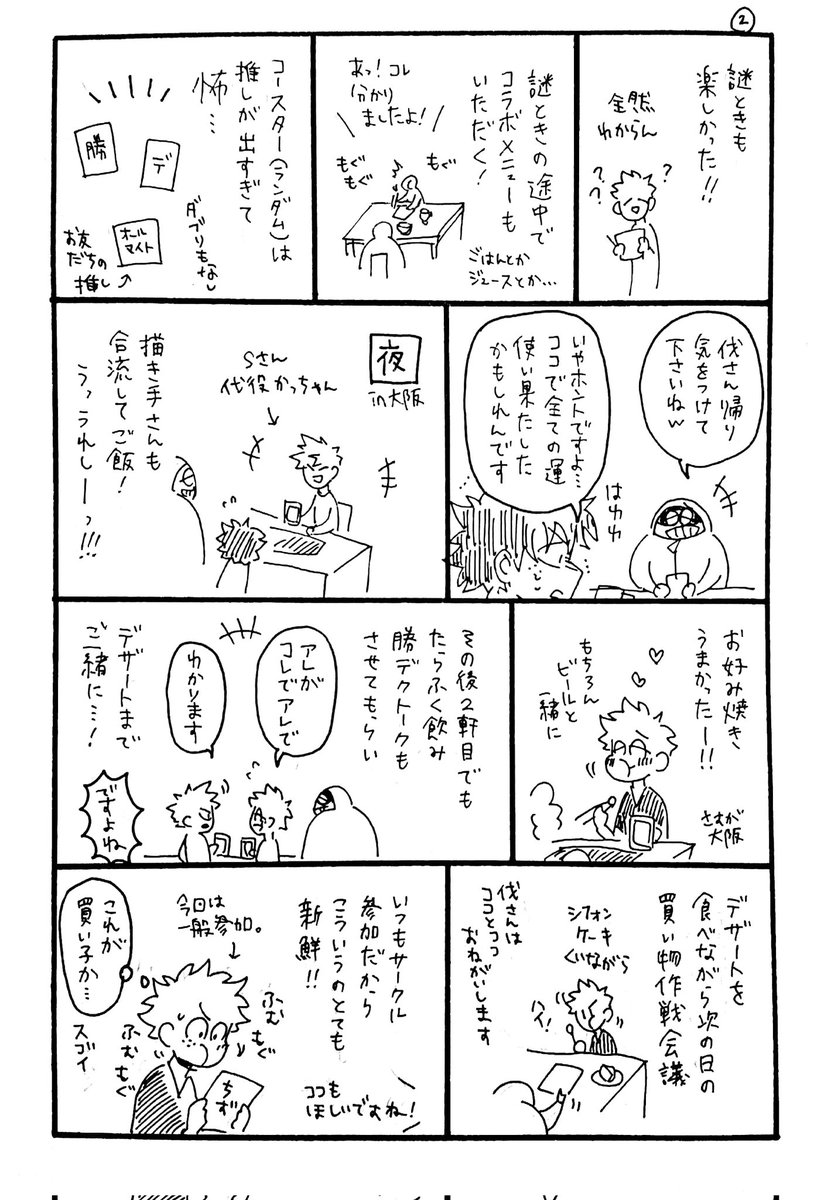 ②
謎ときも
楽しかった!!
全然
わからん
???
謎ときの途中で
コラボメニューも
いただく!
あっ!コレ
分かり
ましたよ!
もぐ
もぐ
もぐ
♪
ごはんとか
ジュースとか…
コースター(ランダム)は
推しが出すぎて
怖…
勝
デ
オール
マイト
ダブりもなし
お友
だちの
推し
伐さん帰り
気をつけて
下さいねw
いやホントですよ…
ココで全ての運
使い果たした
かもしれんです
はわわ
夜
in大阪
Sさん
代役かっちゃん
描き手さんも
合流してご飯!
うっうれしーっ!!!
お好み焼き
うまかったー!!
もちろん
ビールと
一緒に
さすが
大阪
その後2軒目でも
たらふく飲み
勝デクトークも
させてもらい
アレが
コレでアレで
わかります
ですよね
デザートまで
ご一緒に…!
デザートを
食べながら次の日の
買い物作戦会議
シフォン
ケーキ
くいながら
ハイ!
伐さんは
ココとココ
おねがいします
いつもサークル
参加だから
こういうのとても
新鮮!!
ココも
ほしいですね!
今回は
一般参加。
これが
買い子か…
スゴイ
ふむ
もぐ
ふむ
もぐ
ちず